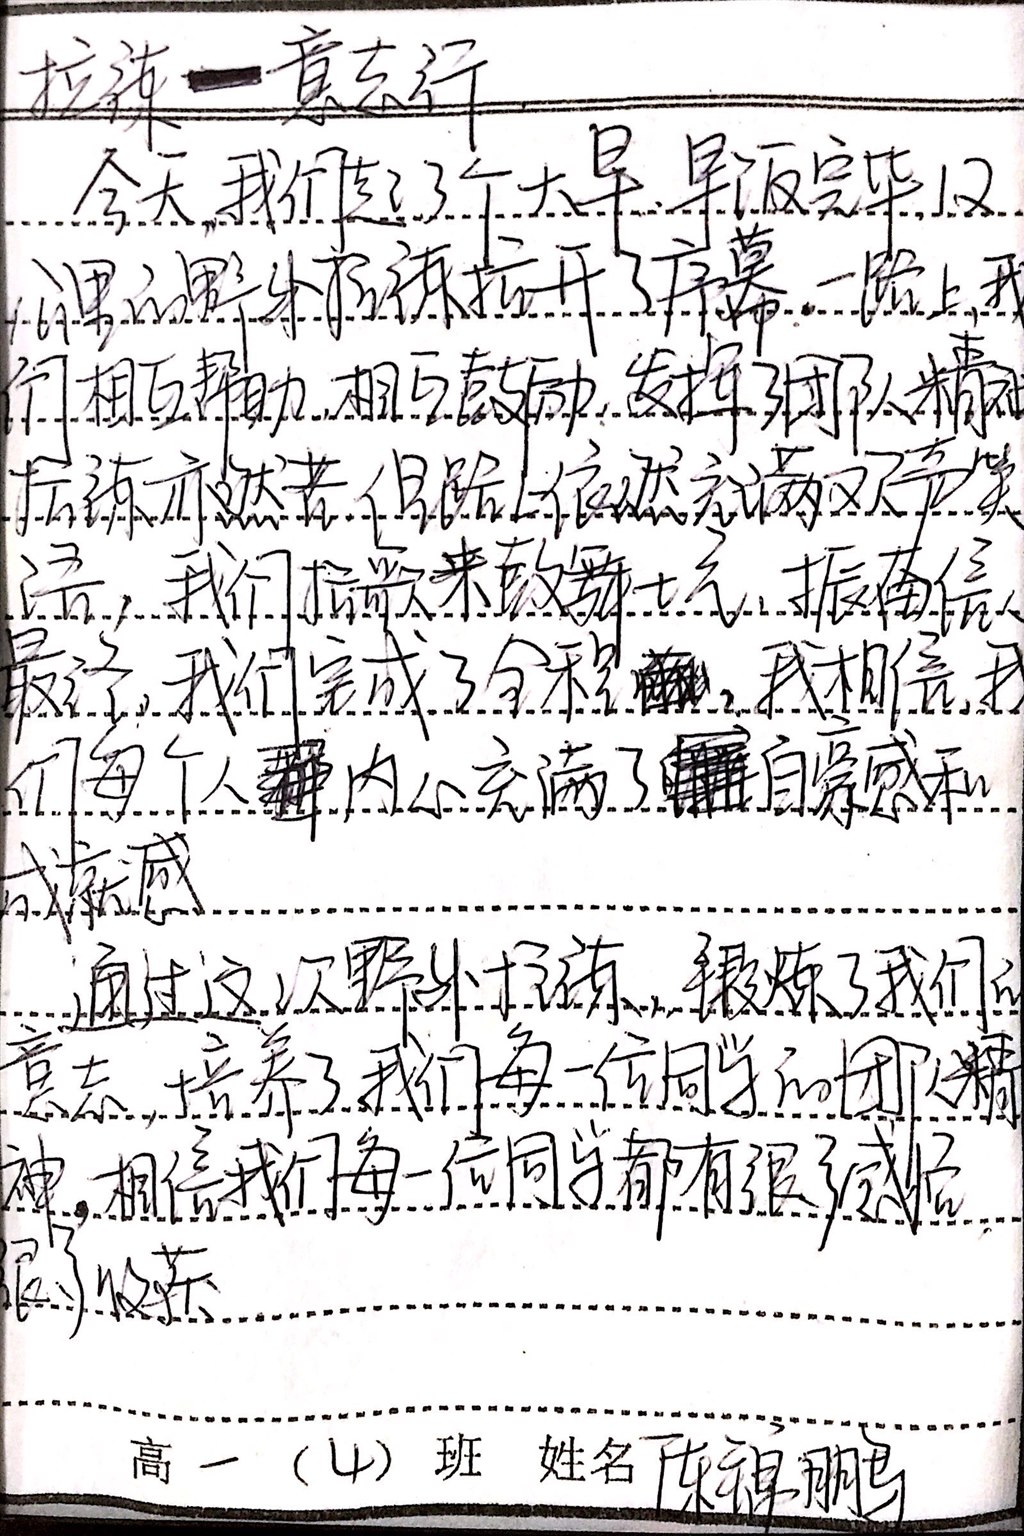 拉练一意志行
今天,我们起了个大早.早饭完毕,仅
的野外拉练拉开了序幕.一路上,我
们相互帮助.相互鼓励,发挥了团队精神
拉练亦然苦,但路上依然充满欢声笑
语,我们拉歌来鼓舞士气,振奋信心
最终,我们完成了全程。我相信,我
们每个人内心充满了自豪感和
成就感
通过这次野外拉练,锻炼了我们的
意志,培养了我们每一位同学的团队精
神,相信我们每一位同学都有很多感悟
很多收获
高一(4)班 姓名 陈禕鹏